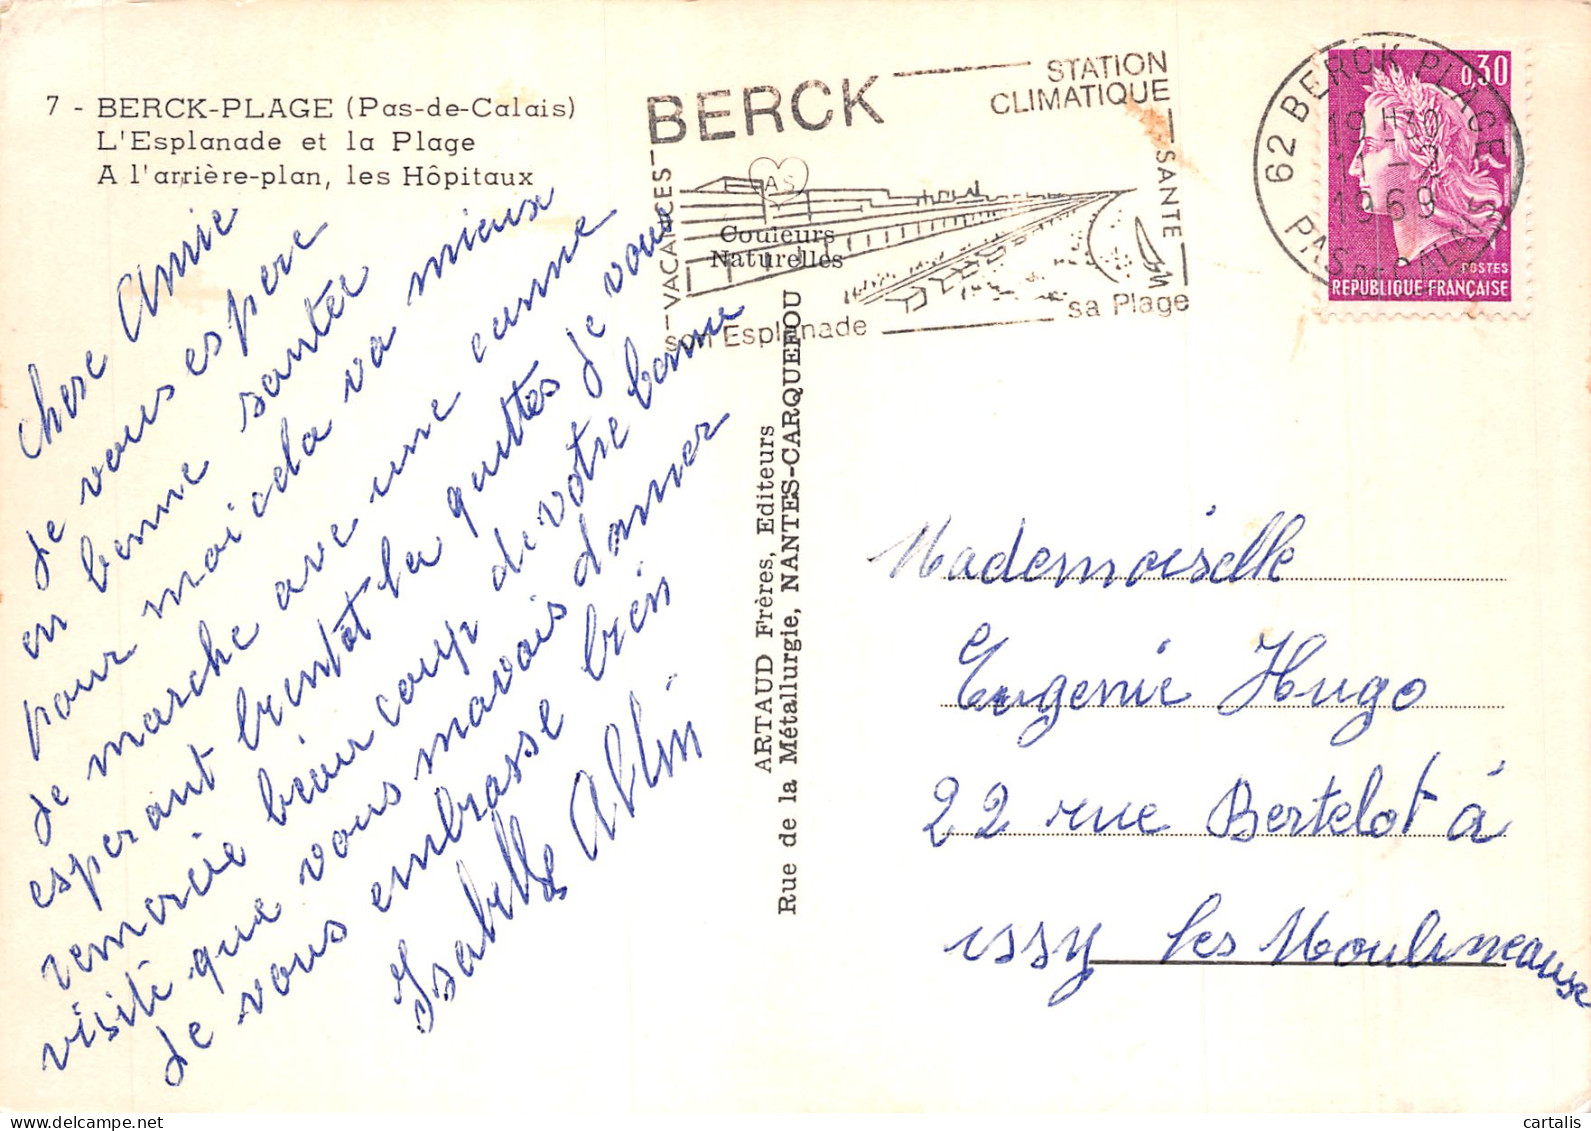 7 - BERCK-PLAGE (Pas-de-Calais)
L'Esplanade et la Plage
A l'arrière-plan, les Hôpitaux
Chere Amie
Je vous espere
en bonne santer
pour moi cela va mieux
Je marche ave une canne
esperant bientôt la quittes Je vous
remercie beaucoup de votre bonne
visite que vous mavais donner
Je vous embrasse bien
Isabelle Ablin
BERCK
STATION
CLIMATIQUE
VACANCES
SANTE
son Esplanade
sa Plage
AS
Couleurs
Naturelles
ARTAUD Frères, Editeurs
Rue de la Métallurgie, NANTES-CARQUEFOU
62 BERCK PLAGE
19 H30
1969
PAS DE CALAIS
0,30
POSTES
REPUBLIQUE FRANÇAISE
Mademoiselle
Eugenie Hugo
22 rue Bertelot à
issy les Moulineause
cartalis